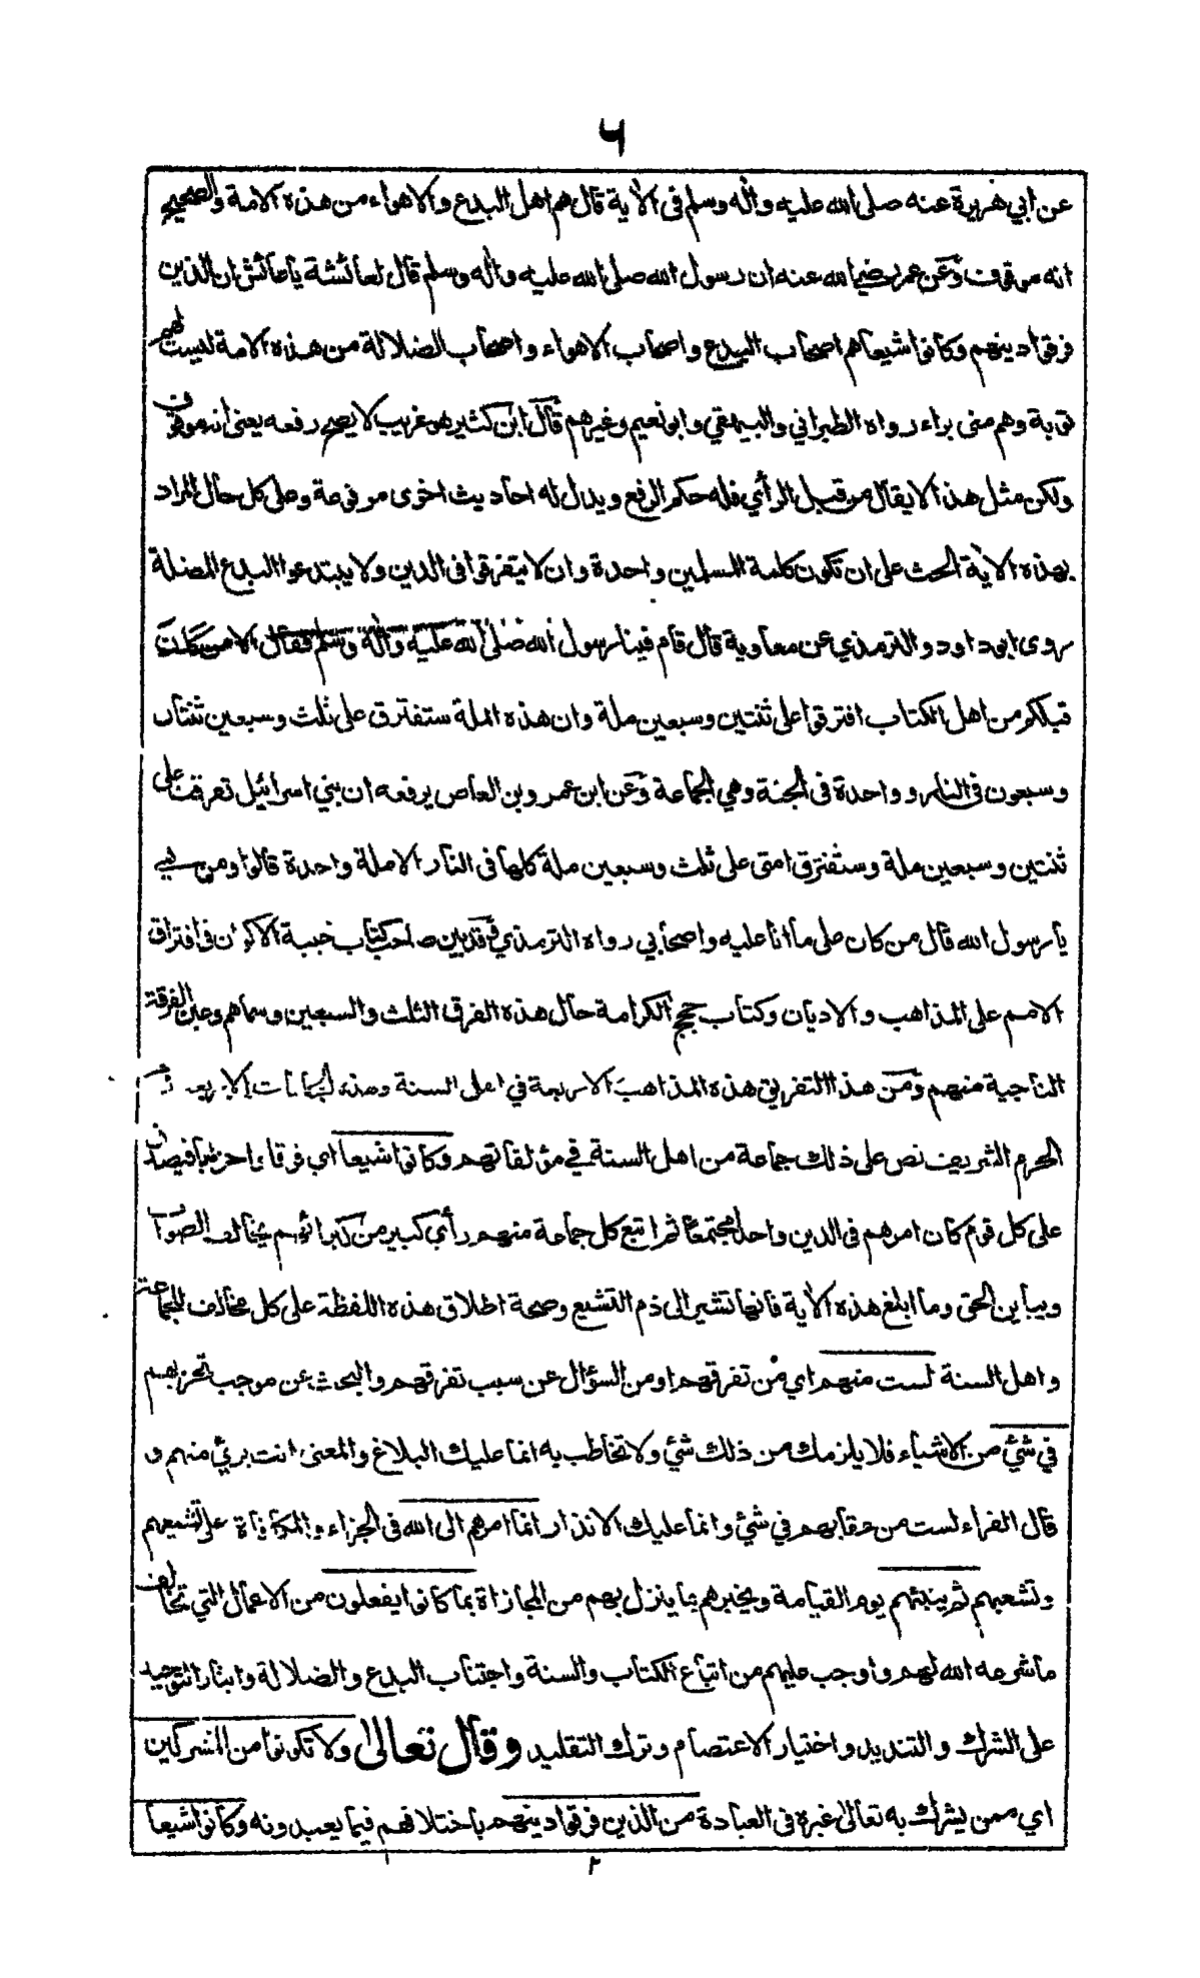 ٦
عن ابي هريرة عنه صلى الله عليه واله وسلم في الاية قال هم اهل البدع والاهواء من هذه الامة والصحيح
انه موقوف وعن عمر رضي الله عنه ان رسول الله صلى الله عليه واله وسلم قال لعائشة يا عائش ان الذين
فرقوا دينهم وكانوا شيعا هم اصحاب البدع واصحاب الاهواء واصحاب الضلالة من هذه الامة ليست لهم
توبة وهم مني براء رواه الطبراني والبيهقي وابو نعيم وغيرهم قال ابن كثير هو غريب لا يصح رفعه يعني انه موقوف
ولكن مثل هذا لا يقال من قبل الرأي فله حكم الرفع ويدل له احاديث اخرى مرفوعة وعلى كل حال المراد
بهذه الاية الحث على ان تكون كلمة المسلمين واحدة وان لا يتفرقوا في الدين ولا يبتدعوا البدع المضلة
روى ابو داود والترمذي عن معاوية قال قام فينا رسول الله صلى الله عليه واله وسلم فقال الا من كان
قبلكم من اهل الكتاب افترقوا على ثنتين وسبعين ملة وان هذه الملة ستفترق على ثلث وسبعين ثنتان
وسبعون في النار وواحدة في الجنة وهي الجماعة وعن ابن عمرو بن العاص يرفعه ان بني اسرائيل تفرقت على
ثنتين وسبعين ملة وستفترق امتي على ثلث وسبعين ملة كلها في النار الا ملة واحدة قالوا ومن هي
يا رسول الله قال من كان على ما انا عليه واصحابي رواه الترمذي وقد بين صاحب كتاب خبيئة الاكوان في افتراق
الامم على المذاهب والاديان وكتاب حجج الكرامة حال هذه الفرق الثلث والسبعين وسماهم وعين الفرقة
الناجية منهم ومن هذا التفريق هذه المذاهب الاربعة في اهل السنة وهذه الجماعات الاربعة في
الحرم الشريف نص على ذلك جماعة من اهل السنة في مؤلفاتهم وكانوا شيعا اي فرقا واحزابا فيصدق
على كل قوم كان امرهم في الدين واحدا مجتمعا ثم اتبع كل جماعة منهم رأي كبير من كبرائهم يخالف الصواب
ويباين الحق وما ابلغ هذه الاية فانها تشير الى ذم التشيع وصحة اطلاق هذه اللفظة على كل مخالف للجماعة
واهل السنة لست منهم اي من تفرقهم او من السؤال عن سبب تفرقهم والبحث عن موجب تحزبهم
في شيء من الاشياء فلا يلزمك من ذلك شيء ولا تخاطب به انما عليك البلاغ والمعنى انت بريء منهم و
قال الفراء لست من عقابهم في شيء وانما عليك الانذار انما امرهم الى الله في الجزاء والمكافاة على تشيعهم
وتشعبهم ثم ينبئهم يوم القيامة ويخبرهم بما ينزل بهم من المجازاة بما كانوا يفعلون من الاعمال التي تخالف
ما شرعه الله لهم واوجب عليهم من اتباع الكتاب والسنة واجتناب البدع والضلالة وايثار التوحيد
على الشرك والتنديد واختيار الاعتصام وترك التقليد وقال تعالى ولا تكونوا من المشركين
اي ممن يشرك به تعالى غيره في العبادة من الذين فرقوا دينهم باختلافهم فيما يعبدونه وكانوا شيعا
٢